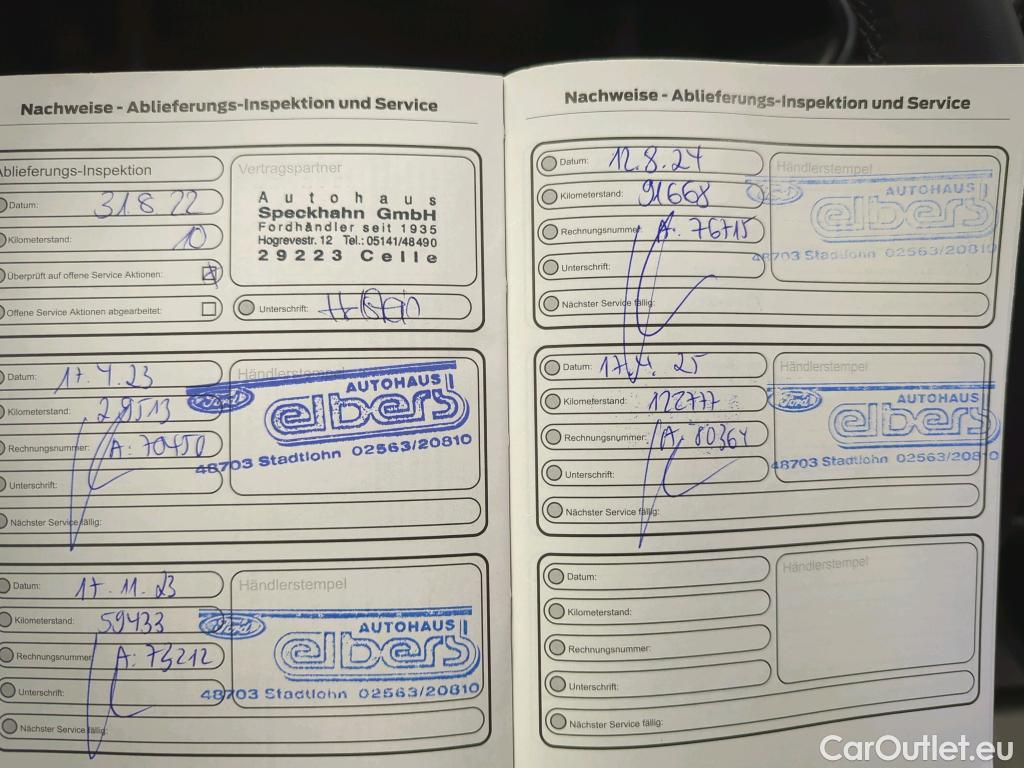 Nachweise - Ablieferungs-Inspektion und Service
Ablieferungs-Inspektion
Datum: 31.8.22
Kilometerstand: 10
Überprüft auf offene Service Aktionen:
Offene Service Aktionen abgearbeitet:
Vertragspartner
Autohaus
Speckhahn GmbH
Fordhändler seit 1935
Hogrevestr. 12 Tel.: 05141/48490
29223 Celle
Unterschrift:
Datum: 17.4.23
Kilometerstand: 29513
Rechnungsnummer: A: 70450
Unterschrift:
Nächster Service fällig:
Händlerstempel
Ford
AUTOHAUS
elbers
48703 Stadtlohn 02563/20810
Datum: 17.11.23
Kilometerstand: 59433
Rechnungsnummer: A: 73212
Unterschrift:
Nächster Service fällig:
Händlerstempel
Ford
AUTOHAUS
elbers
48703 Stadtlohn 02563/20810
Nachweise - Ablieferungs-Inspektion und Service
Datum: 12.8.24
Kilometerstand: 91668
Rechnungsnummer: A: 76715
Unterschrift:
Nächster Service fällig:
Händlerstempel
Ford
AUTOHAUS
elbers
48703 Stadtlohn 02563/20810
Datum: 17.4.25
Kilometerstand: 122777
Rechnungsnummer: A: 80364
Unterschrift:
Nächster Service fällig:
Händlerstempel
Ford
AUTOHAUS
elbers
48703 Stadtlohn 02563/20810
Datum:
Kilometerstand:
Rechnungsnummer:
Unterschrift:
Nächster Service fällig:
Händlerstempel
CarOutlet.eu